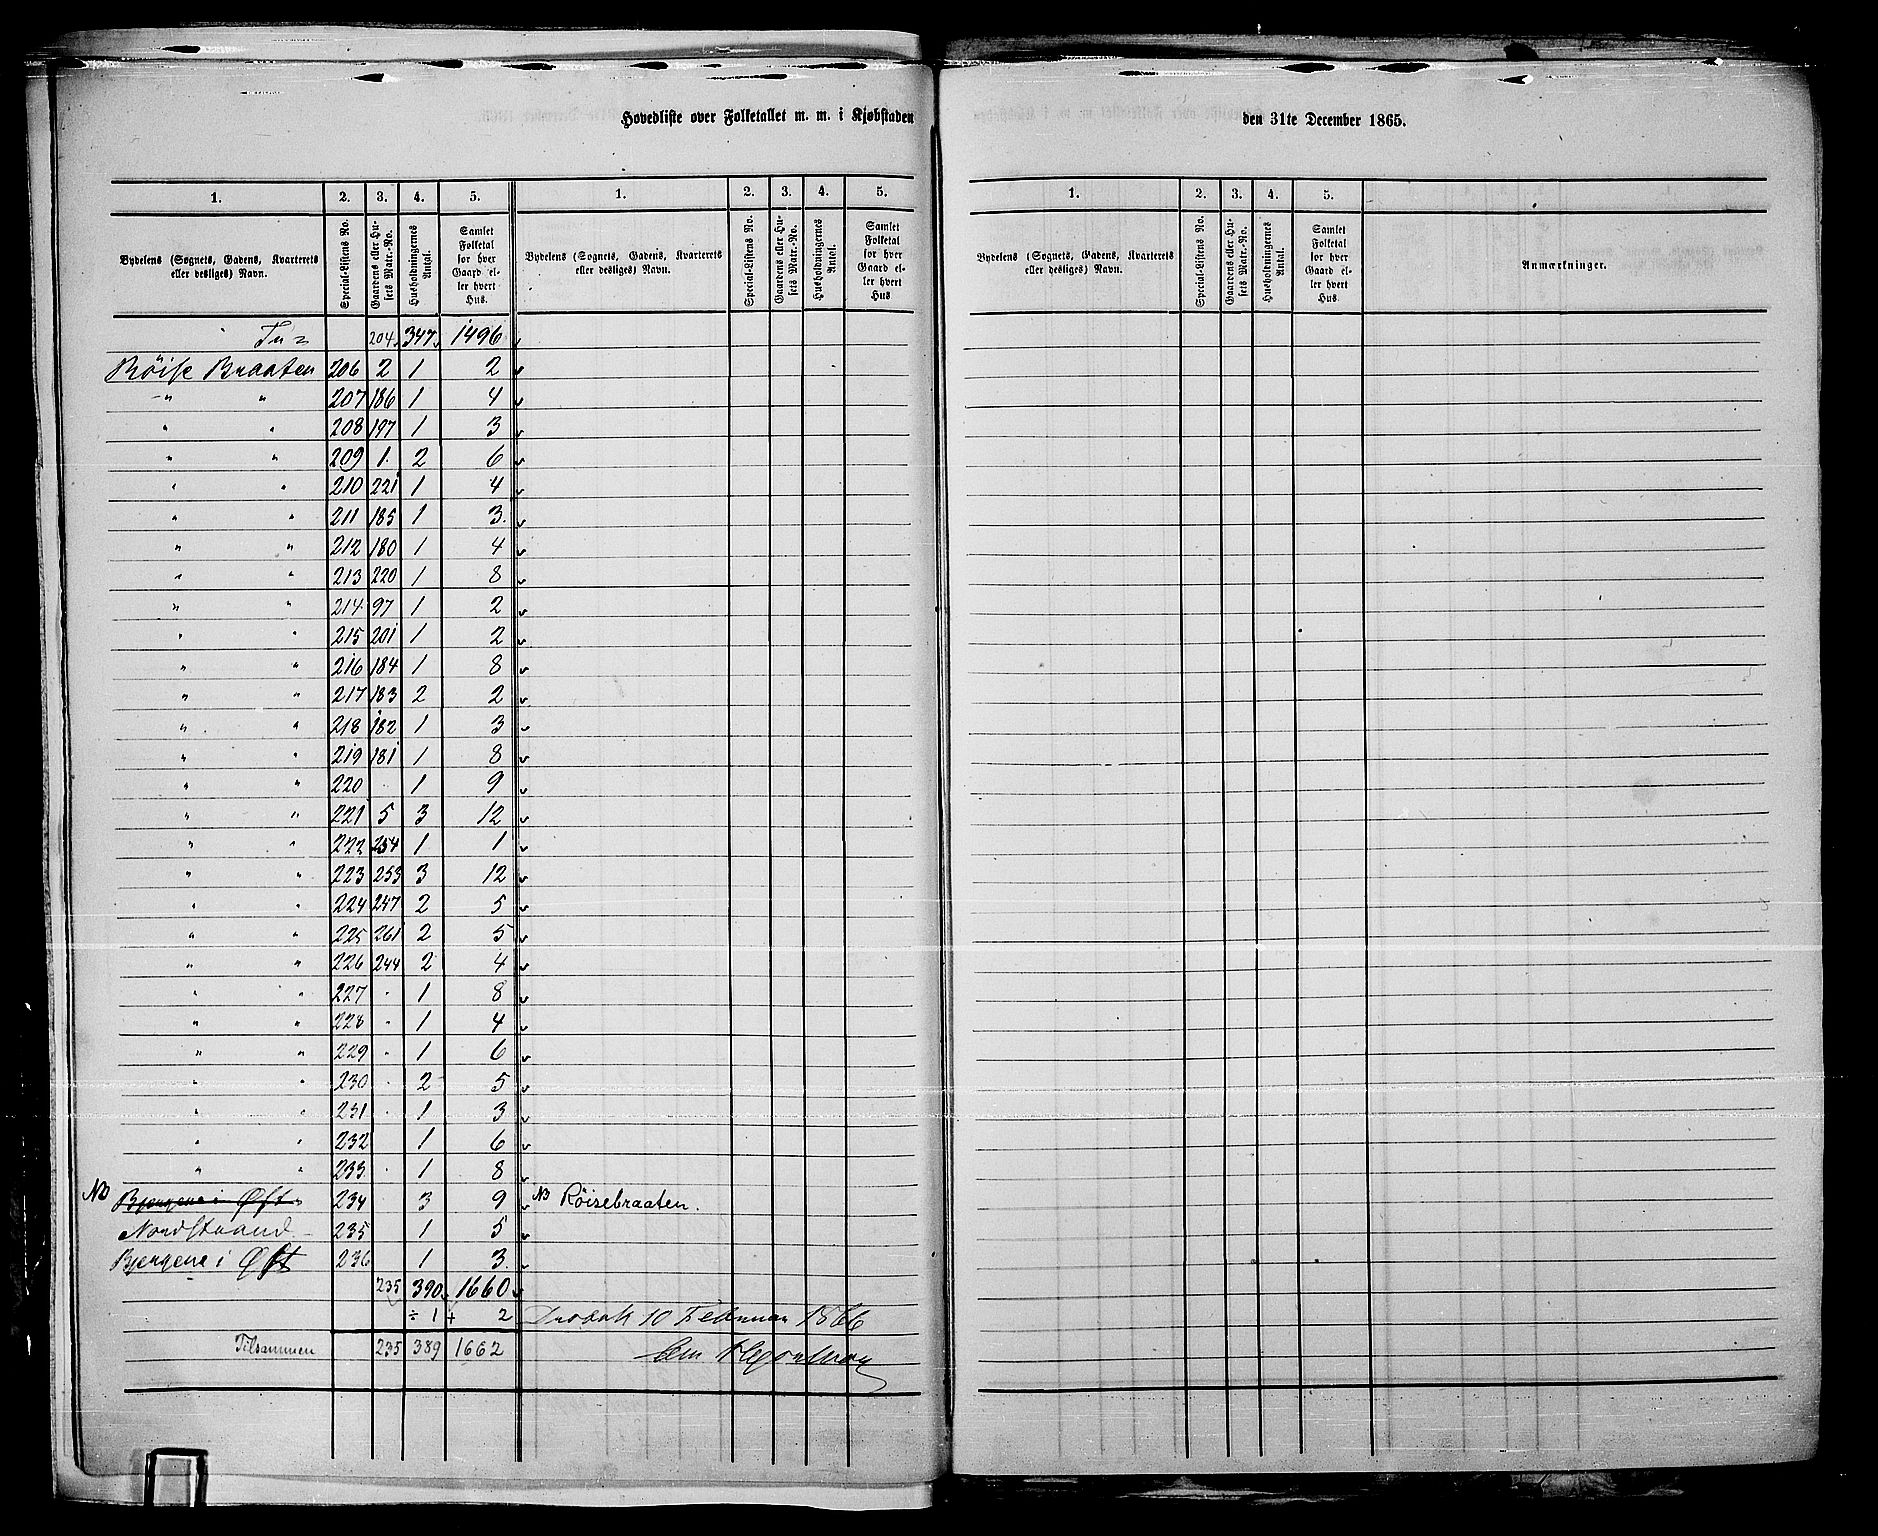 Hovedliste over Folketallet m. m. i Kjøbstaden den 31te December 1865.
1. 2. 3. 4. 5. 1. 2. 3. 4. 5. 1. 2. 3. 4. 5.
Bydelens (Sognets, Gadens, Kvarterets eller desliges) Navn. Special-Listens No. Gaardens eller Husets Matr.-No. Husholdningernes Antal. Samlet Folketal for hver Gaard eller hvert Hus.
Bydelens (Sognets, Gadens, Kvarterets eller desliges) Navn. Special-Listens No. Gaardens eller Husets Matr.-No. Husholdningernes Antal. Samlet Folketal for hver Gaard eller hvert Hus
Bydelens (Sognets, Gadens, Kvarterets eller desliges) Navn. Special-Listens No. Gaardens eller Husets Matr.-No. Husholdningernes Antal. Samlet Folketal for hver Gaard eller hvert Hus. Anmærkninger.
204 347 1496
Röise Braaten 206 2 1 2
" " 207 186 1 4
" " 208 197 1 3
" " 209 1 2 6
" " 210 221 1 4
" " 211 185 1 3
" " 212 180 1 4
" " 213 220 1 8
" " 214 97 1 2
" " 215 201 1 2
" " 216 184 1 8
" " 217 183 2 2
" " 218 182 1 3
" " 219 181 1 8
" " 220 1 9
" " 221 5 3 12
" " 222 254 1 1
" " 223 253 3 12
" " 224 247 2 5
" " 225 261 2 5
" " 226 244 2 4
" " 227 1 8
" " 228 1 4
" " 229 1 6
" " 230 2 5
" " 231 1 3
" " 232 1 6
" " 233 1 8
NB Bjergene i Øst 234 3 9 NB Röisebraaten.
Nordstrand 235 1 5
Bjergene i Øst 236 1 3
235 390 1660
÷ 1 + 2 Drobak 10 Februar 1866
Tilsammen 235 389 1662